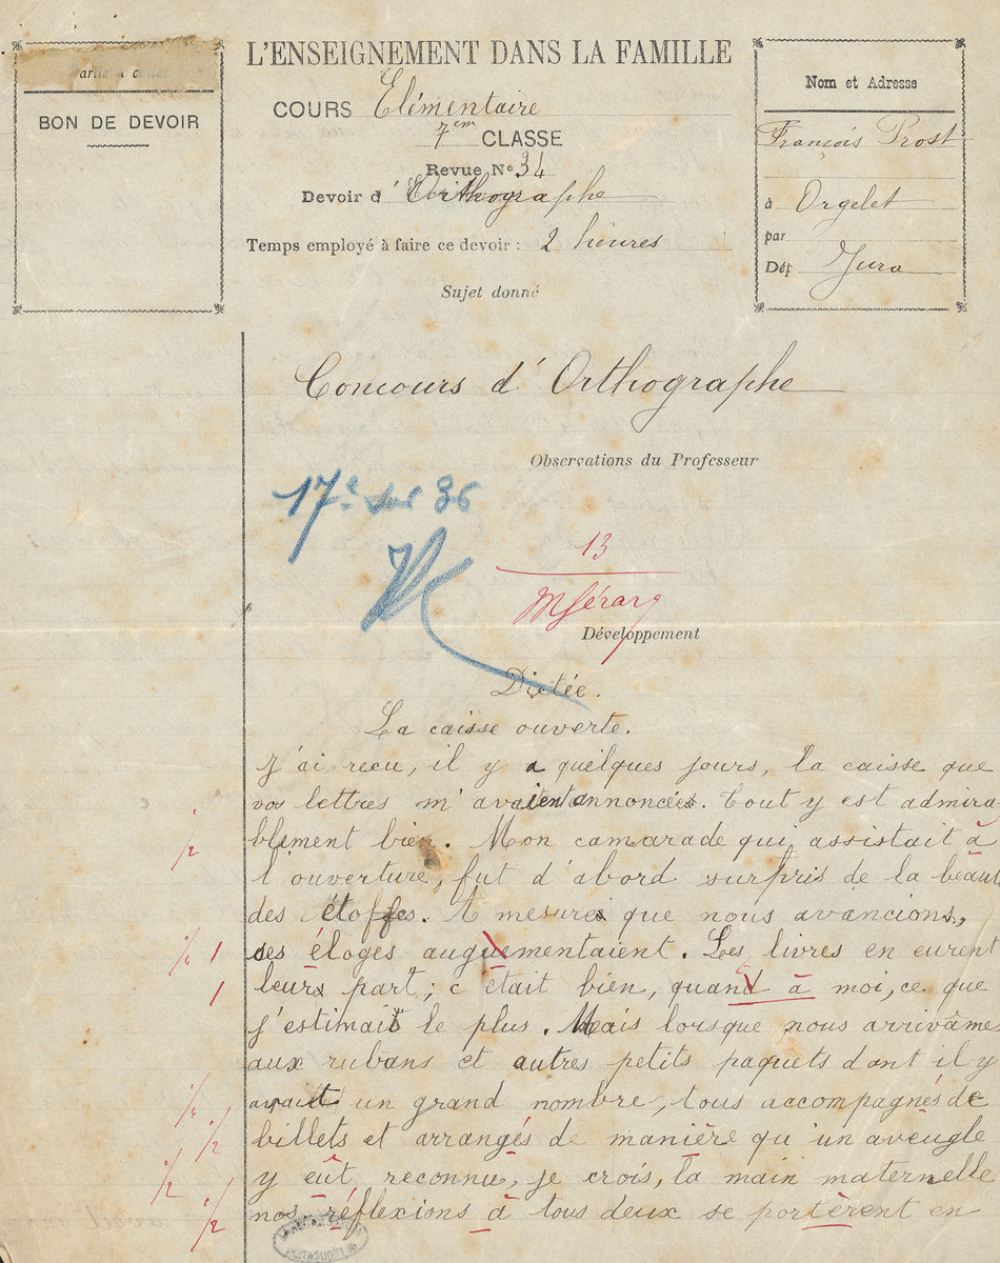 L'ENSEIGNEMENT DANS LA FAMILLE
BON DE DEVOIR
COURS Elémentaire
7em CLASSE
Revue N° 34
Devoir d' Orthographe
Temps employé à faire ce devoir : 2 heures
Sujet donné
Nom et Adresse
François Prost
à Orgelet
par
Dép Jura
Concours d'Orthographe
Observations du Professeur
17e sur 36
13
Développement
Dictée.
La caisse ouverte.
J'ai recu, il y a quelques jours, la caisse que
vos lettres m'avaient annoncées. Tout y est admira
1/2 blement bien. Mon camarade qui assistait à
l'ouverture, fut d'abord surpris de la beaut
des étoffes. A mesure que nous avancions,
1/2 1 ses éloges auguementaient. Les livres en eurent
1 leurs part ; c'était bien, quand à moi, ce que
j'estimait le plus. Mais lorsque nous arrivâmes
aux rubans et autres petits paquets dont il y
1/2 avait un grand nombre, tous accompagnés de
1/2 billets et arrangés de manière qu'un aveugle
1/2 y eût reconnu, je crois, la main maternelle
1/2 nos réflexions à tous deux se portèrent en